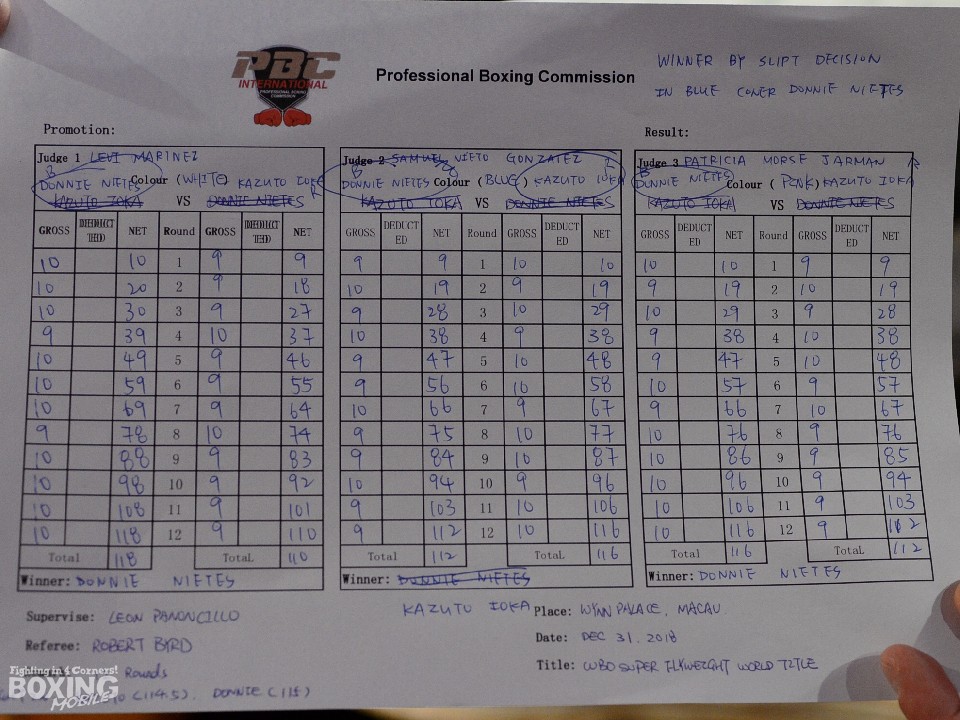 PBC
INTERNATIONAL
PROFESSIONAL BOXING COMMISSION
Professional Boxing Commission
WINNER BY SLIPT DECISION
IN BLUE CONER DONNIE NIETES
Promotion:
Result:
Judge 1 LEVI MARINEZ
B DONNIE NIETES Colour (WHITE) KAZUTO IOKA
KAZUTO IOKA VS DONNIE NIETES
GROSS NET Round GROSS NET
10 10 1 9 9
10 20 2 9 18
10 30 3 9 27
9 39 4 10 37
10 49 5 9 46
10 59 6 9 55
10 69 7 9 64
9 78 8 10 74
10 88 9 9 83
10 98 10 9 92
10 108 11 9 101
10 118 12 9 110
Total 118 TotaL 110
Winner: DONNIE NIETES
Judge 2 SAMUEL NIETO GONZATEZ
B DONNIE NIETES Colour (BLUE) KAZUTO IOKA
KAZUTO IOKA VS DONNIE NIETES
GROSS DEDUCT ED NET Round GROSS DEDUCT ED NET
9 9 1 10 10
10 19 2 9 19
9 28 3 10 29
10 38 4 9 38
9 47 5 10 48
9 56 6 10 58
10 66 7 9 67
9 75 8 10 77
9 84 9 10 87
10 94 10 9 96
9 103 11 10 106
9 112 12 10 116
Total 112 TotaL 116
Winner: DONNIE NIETES
KAZUTO IOKA
Judge 3 PATRICIA MORSE JARMAN
B DONNIE NIETES Colour (PINK) KAZUTO IOKA
KAZUTO IOKA VS DONNIE NIETES
GROSS DEDUCT ED NET Round GROSS DEDUCT ED NET
10 10 1 9 9
9 19 2 10 19
10 29 3 9 28
9 38 4 10 38
9 47 5 10 48
10 57 6 9 57
9 66 7 10 67
10 76 8 9 76
10 86 9 9 85
10 96 10 9 94
10 106 11 9 103
10 116 12 9 112
Total 116 TotaL 112
Winner: DONNIE NIETES
Supervise: LEON PANONCILLO
Referee: ROBERT BYRD
Rounds
(114.5), DONNIE (115)
Place: WYNN PALACE, MACAU
Date: DEC 31, 2018
Title: WBO SUPER FLYWEIGHT WORLD TITLE
Fighting in 4 Corners!
BOXING
MOBILE